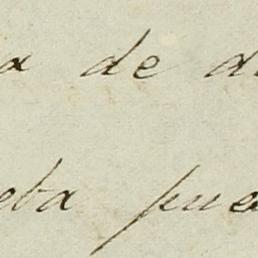 a de d
eta pue